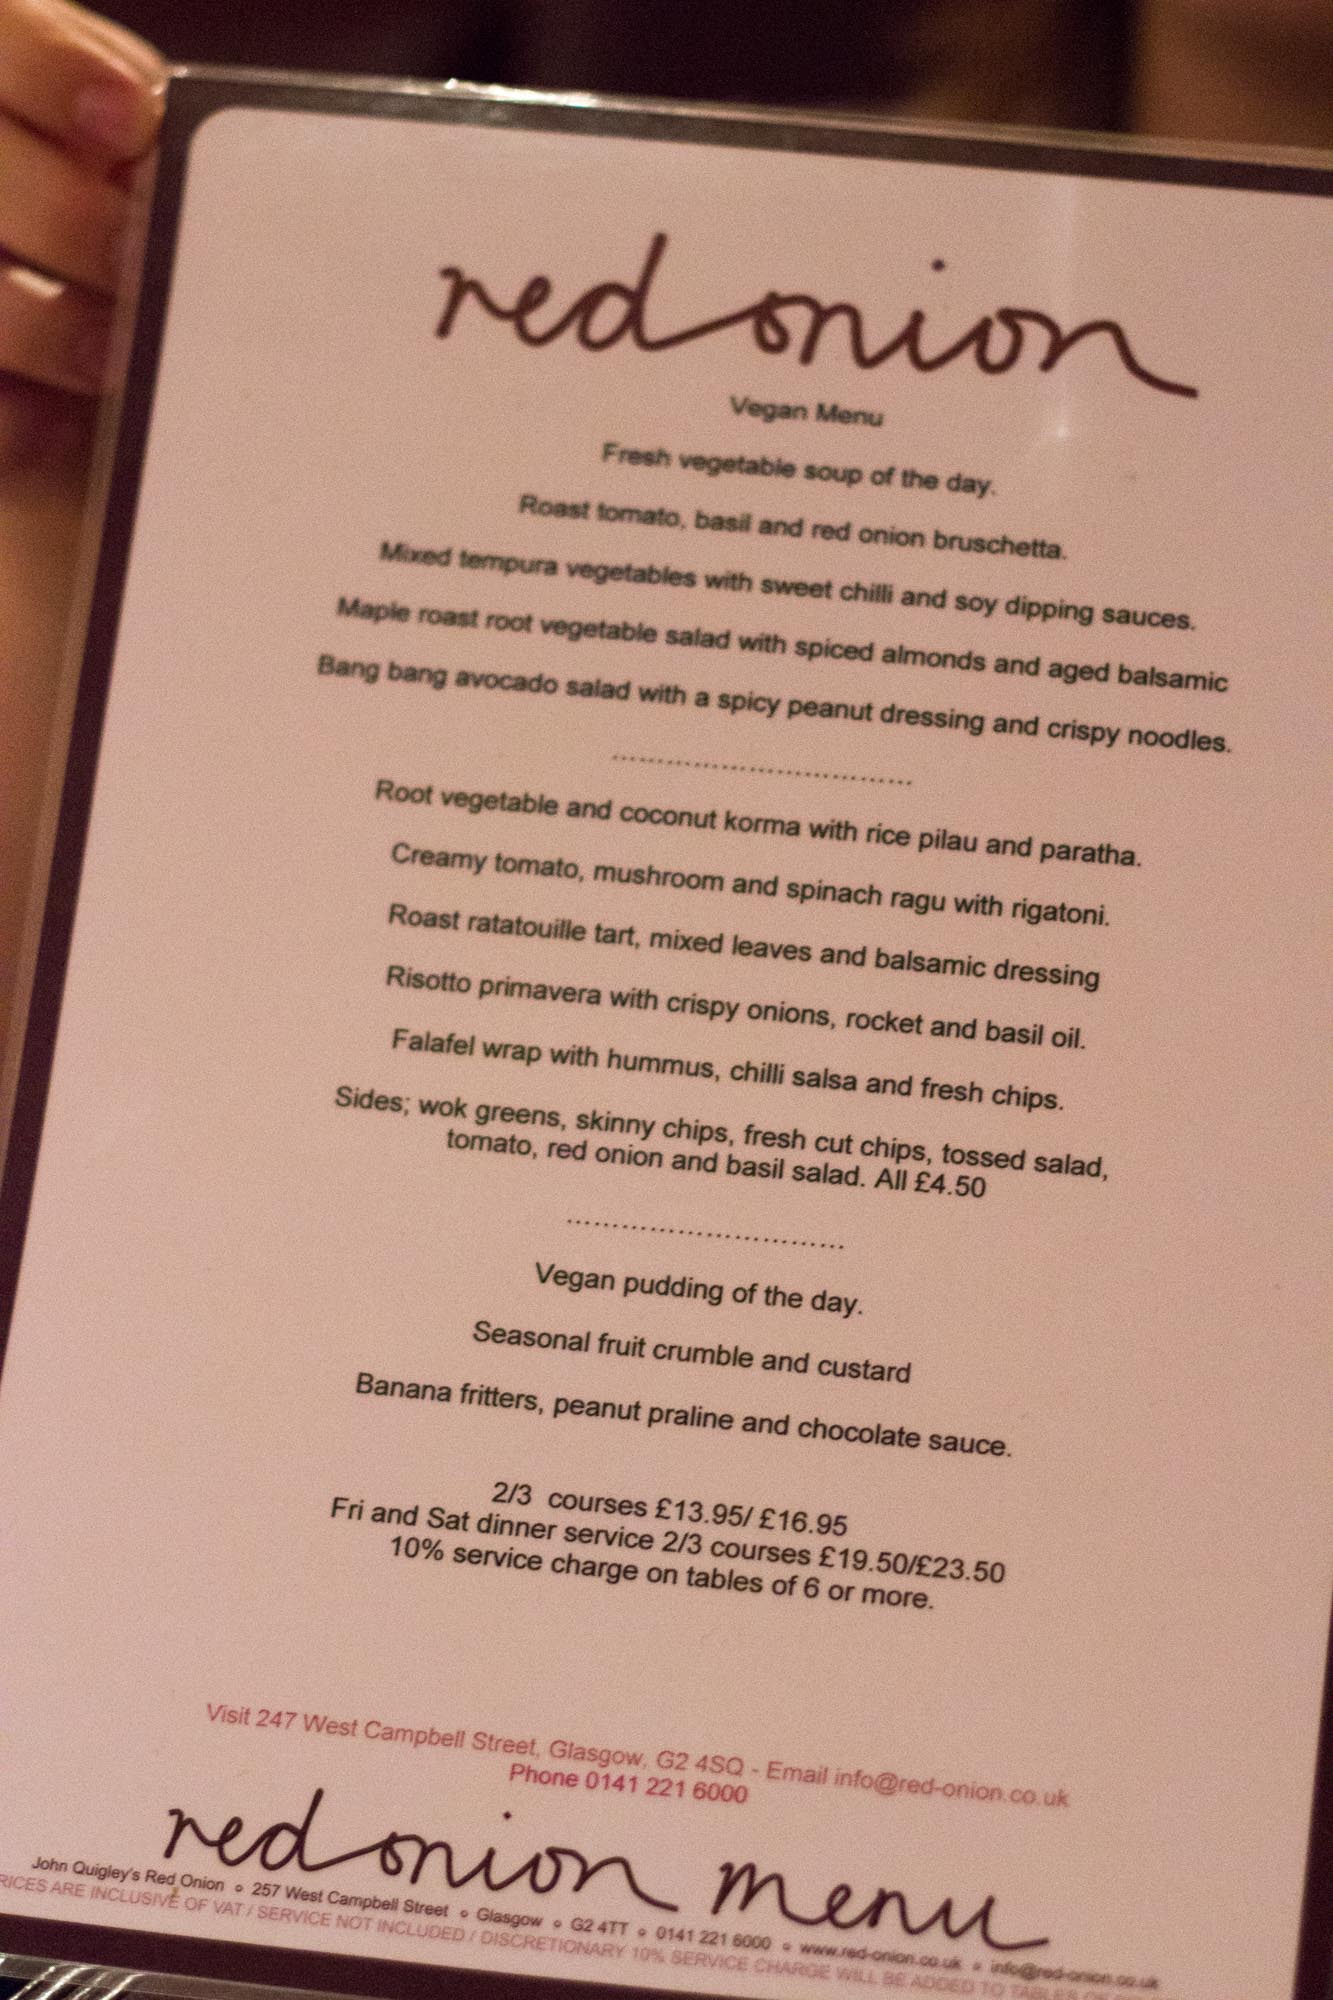 red onion
Vegan Menu
Fresh vegetable soup of the day.
Roast tomato, basil and red onion bruschetta.
Mixed tempura vegetables with sweet chilli and soy dipping sauces.
Maple roast root vegetable salad with spiced almonds and aged balsamic
Bang bang avocado salad with a spicy peanut dressing and crispy noodles.
.................................
Root vegetable and coconut korma with rice pilau and paratha.
Creamy tomato, mushroom and spinach ragu with rigatoni.
Roast ratatouille tart, mixed leaves and balsamic dressing
Risotto primavera with crispy onions, rocket and basil oil.
Falafel wrap with hummus, chilli salsa and fresh chips.
Sides; wok greens, skinny chips, fresh cut chips, tossed salad,
tomato, red onion and basil salad. All £4.50
...............................
Vegan pudding of the day.
Seasonal fruit crumble and custard
Banana fritters, peanut praline and chocolate sauce.
2/3 courses £13.95/ £16.95
Fri and Sat dinner service 2/3 courses £19.50/£23.50
10% service charge on tables of 6 or more.
Visit 247 West Campbell Street, Glasgow, G2 4SQ - Email info@red-onion.co.uk
Phone 0141 221 6000
red onion menu
John Quigley's Red Onion o 257 West Campbell Street o Glasgow o G2 4TT o 0141 221 6000 o www.red-onion.co.uk o info@red-onion.co.uk
RICES ARE INCLUSIVE OF VAT / SERVICE NOT INCLUDED / DISCRETIONARY 10% SERVICE CHARGE WILL BE ADDED TO TABLES OF